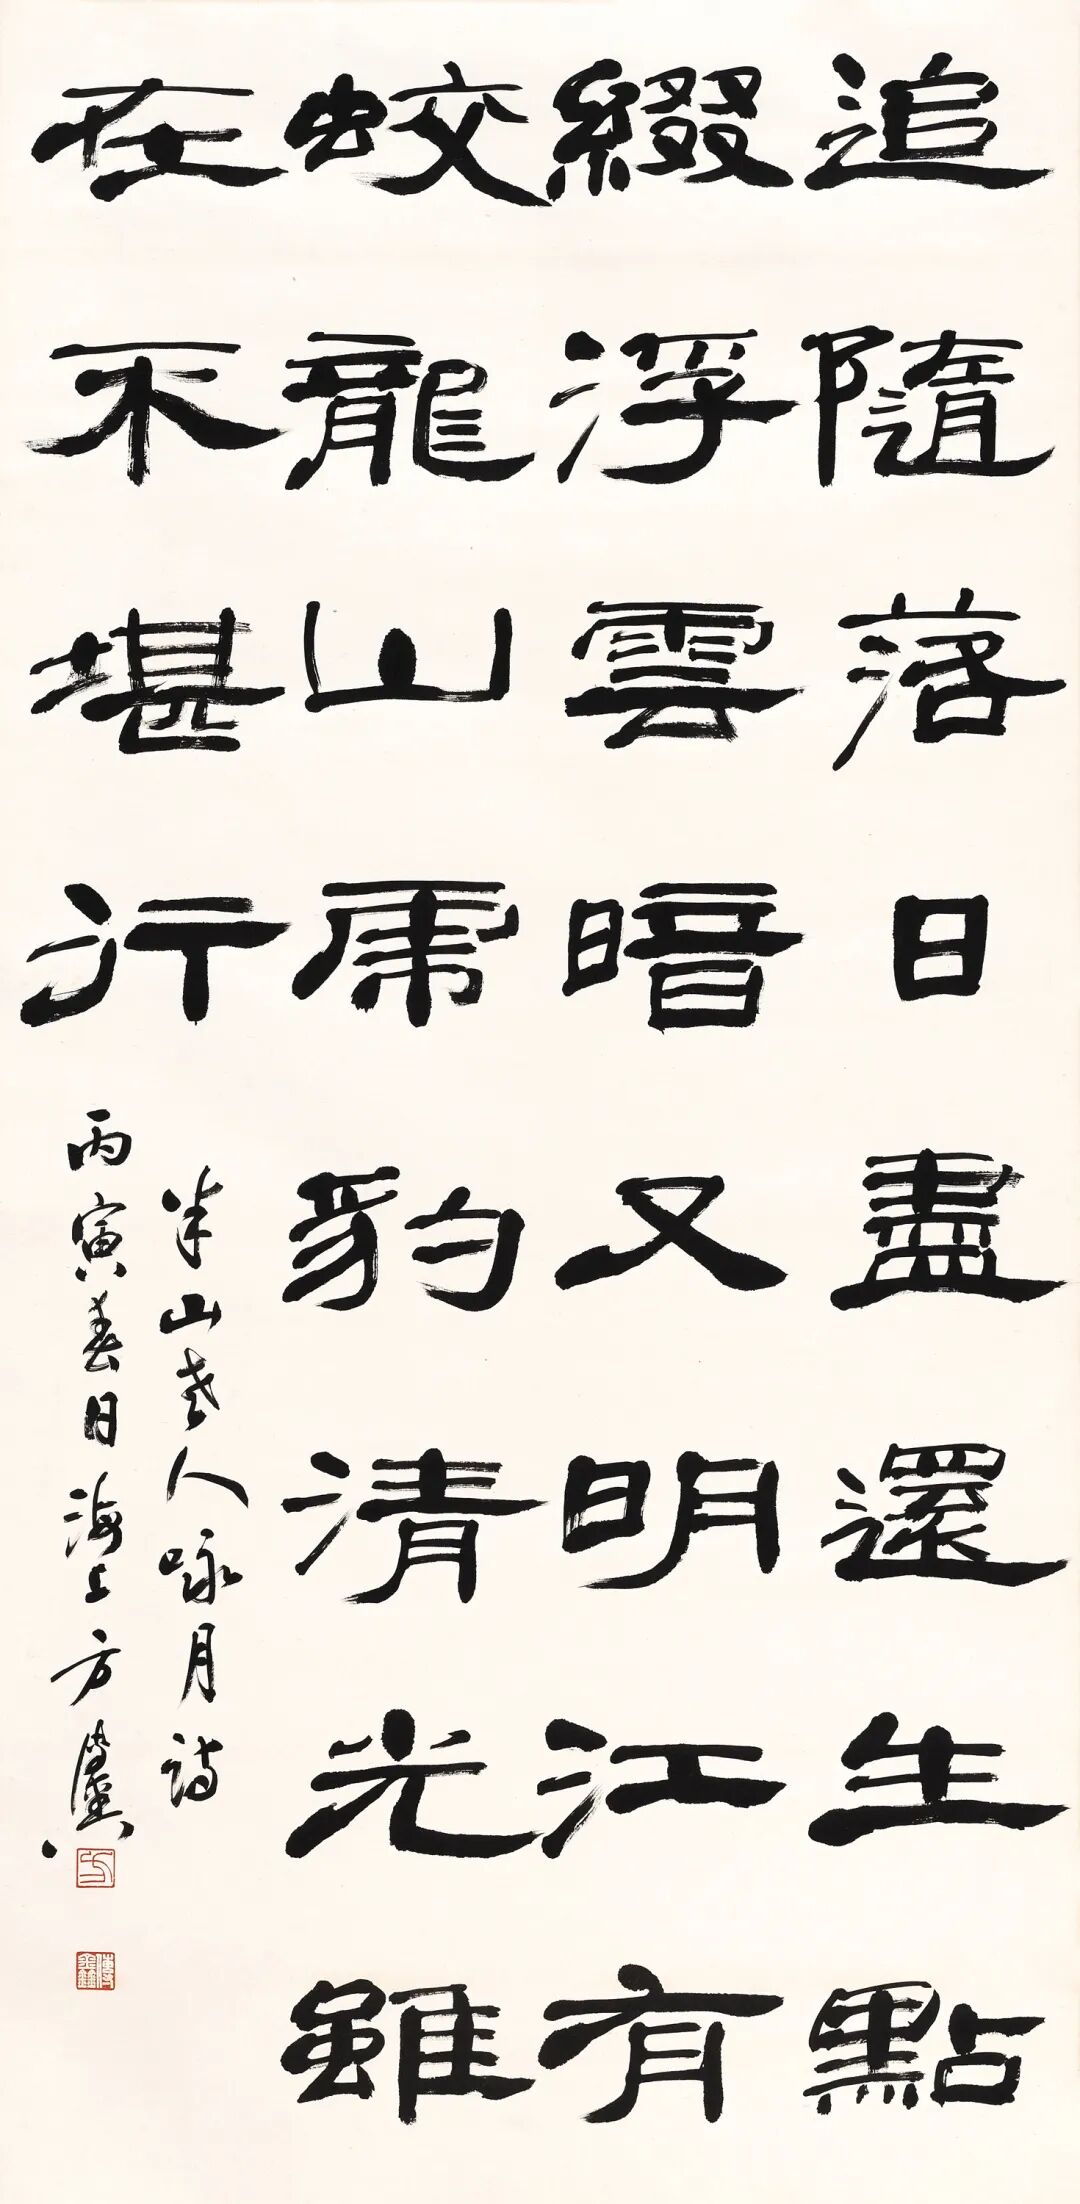 追隨落日盡還生點
綴浮雲暗又明江有
蛟龍山虎豹清光雖
在不堪行
半山老人詠月詩
丙寅春日海上方傳鑫
方
傳鑫